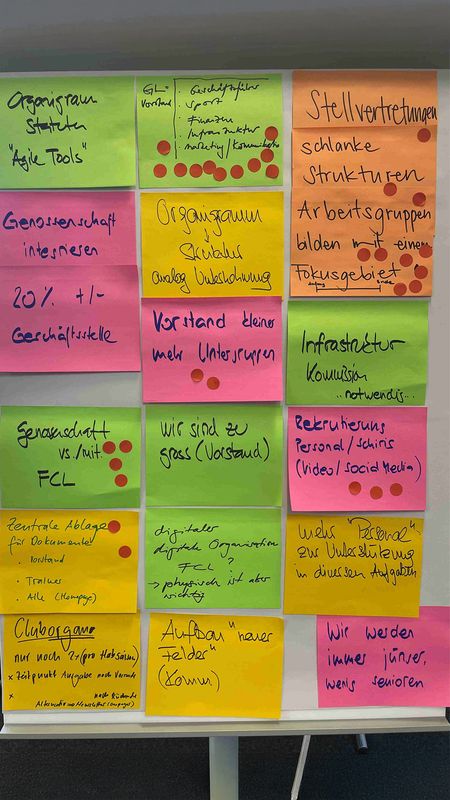 Organigram
Statuten
"Agile Tools"
GL=
Vorstand
· Geschäftsführer
· Sport
· Finanzen
· Infrastruktur
· Marketing/Kommunikation
Stellvertretungen
schlanke
Strukturen
Arbeitsgruppen
bilden mit einem
Fokusgebiet
Genossenschaft
integrieren
Organigramm
analog
20% +/-
Geschäftsstelle
Vorstand kleiner
mehr Untergruppen
Infrastruktur
Kommission
..notwendig...
Genossenschaft
vs./mit.
FCL
wir sind zu
gross (Vorstand)
Rekrutierung
Personal/Schiris
(Video/Social Media)
Zentrale Ablage
für Dokumente
· Vorstand
· Trainer
· Alle (Homepage)
digitaler
digitale Organisation
FCL ?
→ physisch ist aber
wichtig
mehr "Personal"
zur Unterstützung
in diversen Aufgaben
Cluborgan
nur noch 2x (pro
x Zeitpunkt Ausgabe nach Vorrunde
x
nach Rückrunde
Aufbau "neuer
Felder"
(Komm)
Wir werden
immer jünger,
wenig senioren